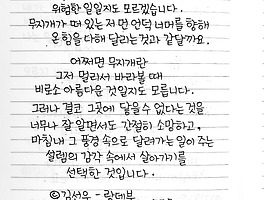 위험한 일일지도 모르겠습니다.
무지개가 떠 있는 저 먼 언덕 너머를 향해
온 힘을 다해 달리는것과 같달까요.
어쩌면 무지개란
그저 멀리서 바라볼 때
비로소 아름다운 것일지도 모릅니다.
그러나 결코 그곳에 닿을수 없다는 것을
너무나 잘 알면서도 간절히 소망하고,
마침내 그 풍경 속으로 달려가는 일이 주는
설렘의 감각 속에서 살아가기를
선택한 것입니다.
©김선우 - 랑데부